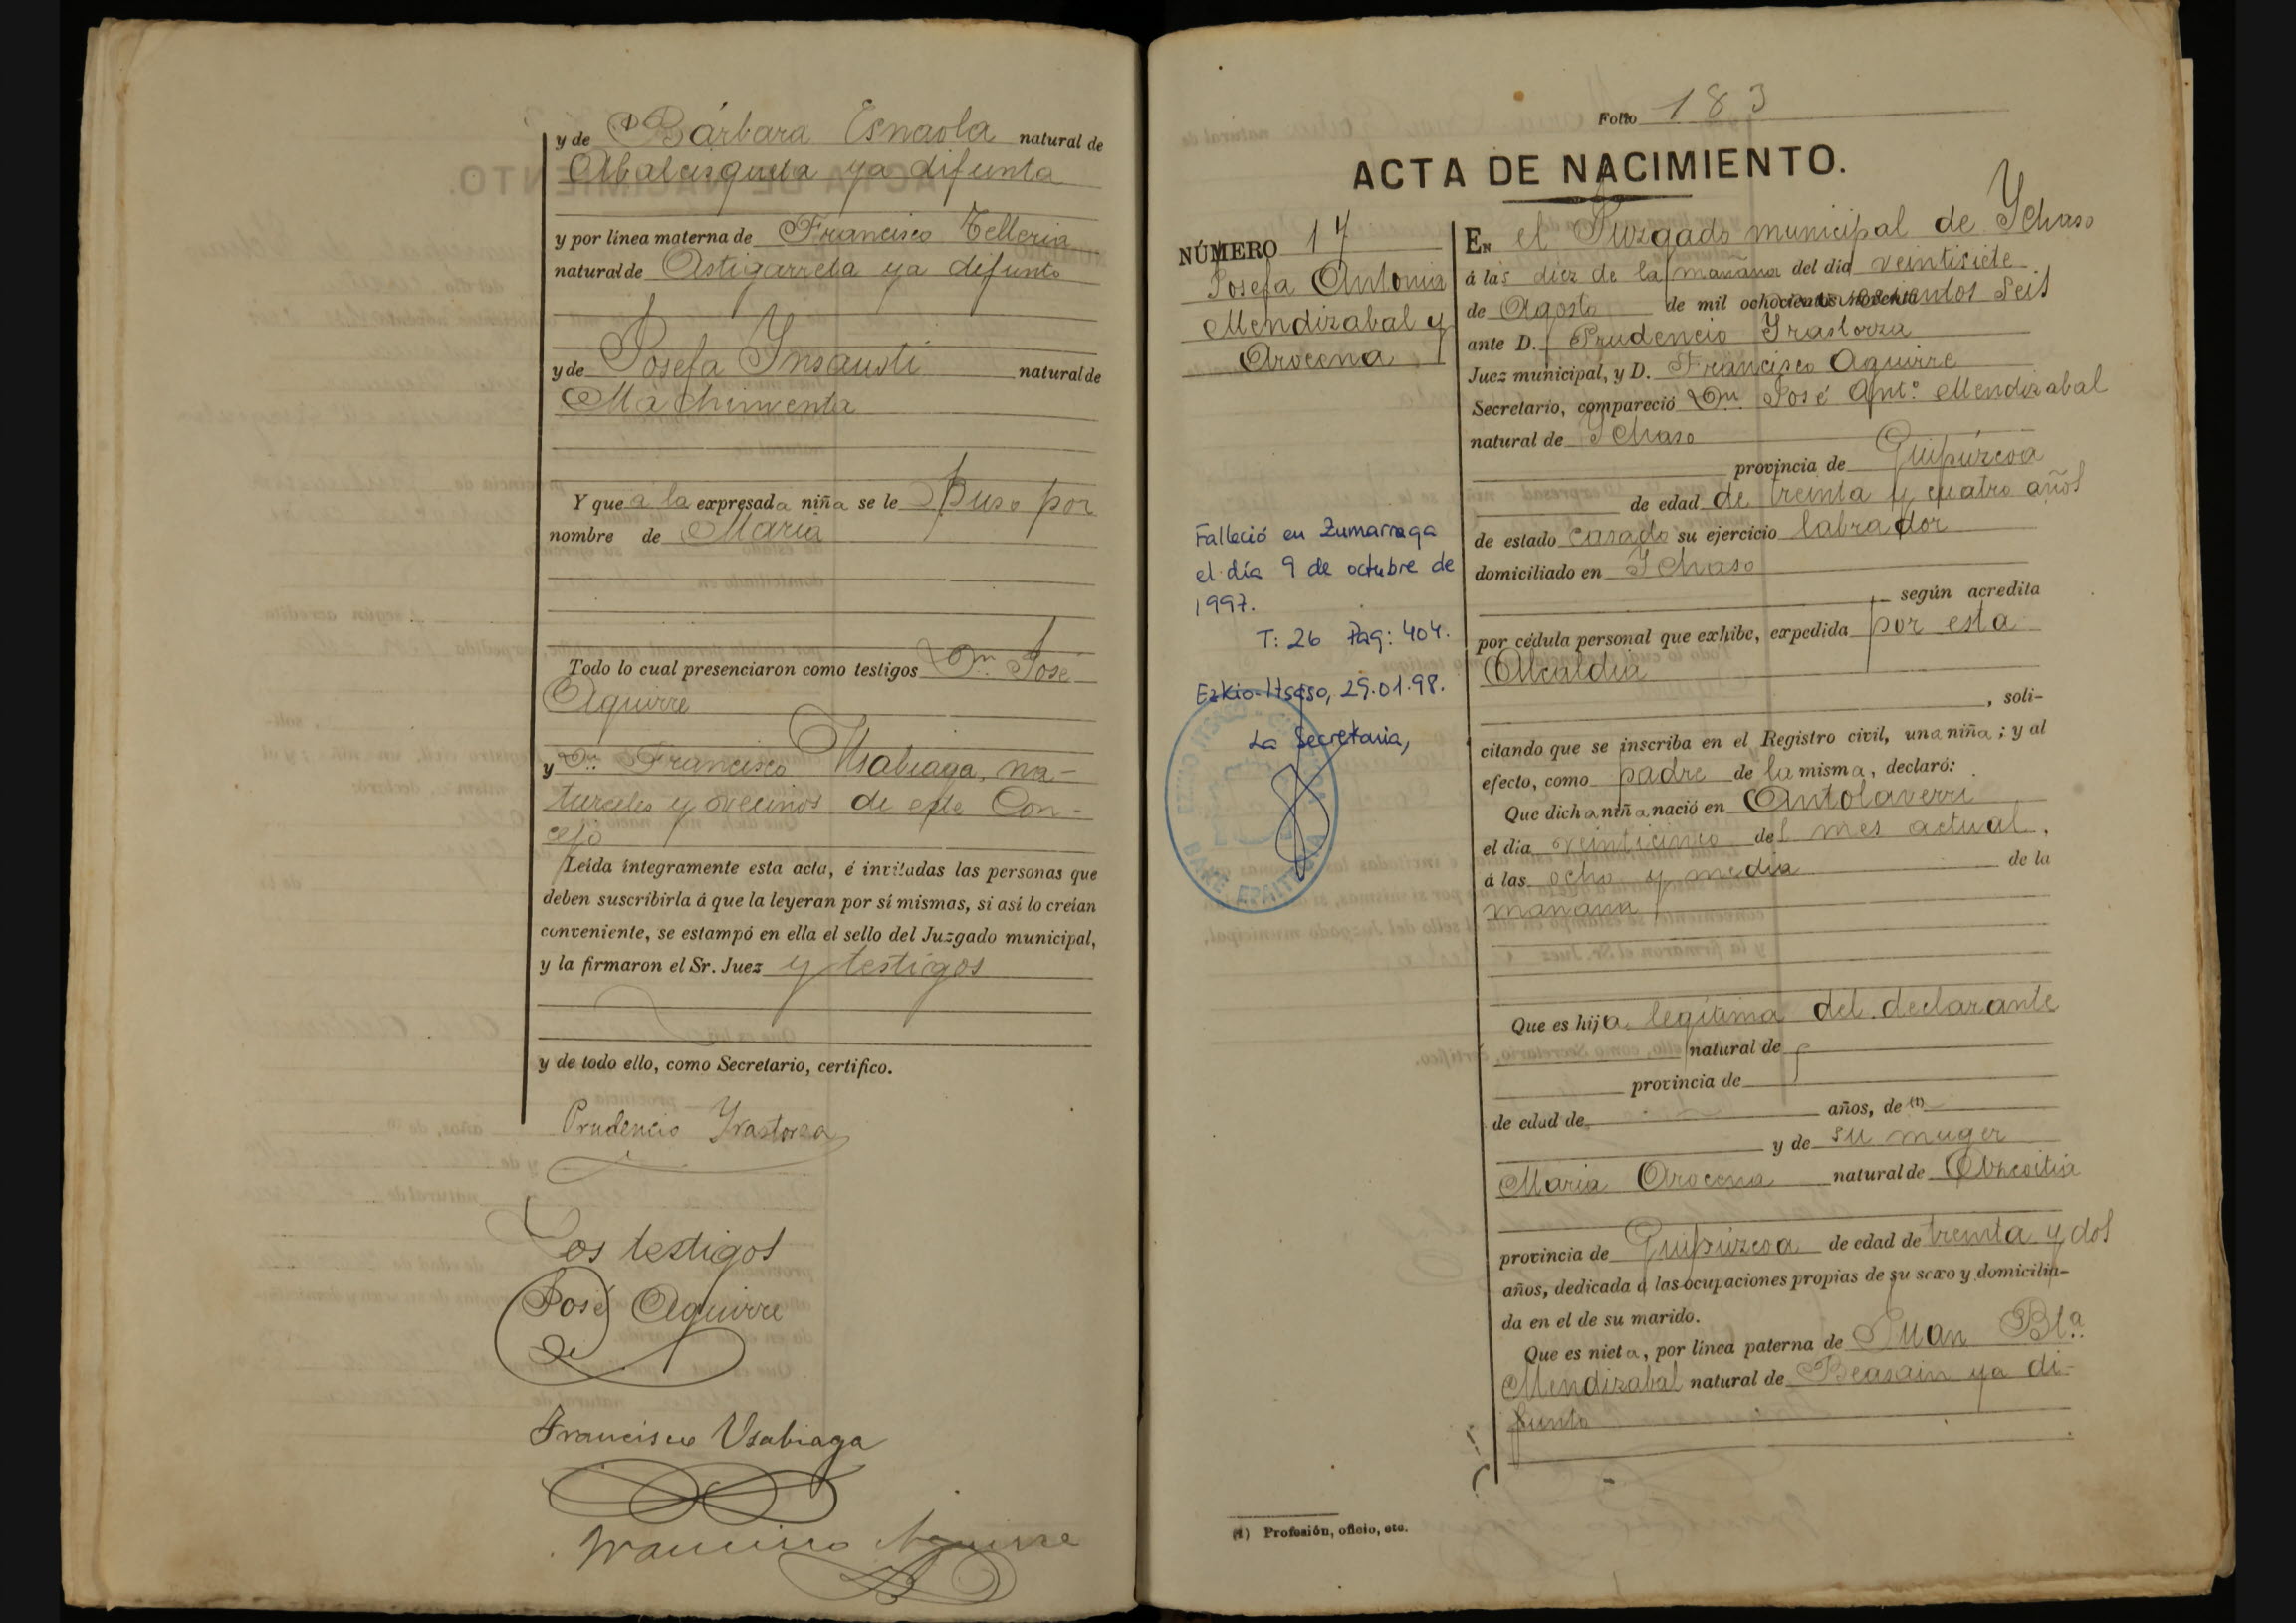 y de Bárbara Esnaola natural de
Abalcisqueta ya difunta
y por línea materna de Francisco Telleria
natural de Astigarreta ya difunto
y de Josefa Ynsausti natural de
Machinventa
Y que a la expresada niña se le puso por
nombre de Maria
Todo lo cual presenciaron como testigos Dn. José
Aguirre
y Dn. Francisco Usabiaga, na-
turales y vecinos de este Con-
cejo
Leída íntegramente esta acta, é invitadas las personas que
deben suscribirla á que la leyeran por sí mismas, si así lo creían
conveniente, se estampó en ella el sello del Juzgado municipal,
y la firmaron el Sr. Juez y testigos
y de todo ello, como Secretario, certifico.
Prudencio Yrastorza
Los testigos
José Aguirre
Francisco Usabiaga
Francisco Aguirre
Folio 183
ACTA DE NACIMIENTO.
NÚMERO 17
Josefa Antonia
Mendizabal y
Arocena
Falleció en Zumarraga
el día 9 de octubre de
1997.
T: 26 Pag: 404.
Ezkio-Itsaso, 29.01.98.
La Secretaria,
BAKE EPAITEGIA
En el Juzgado municipal de Ychaso
á las diez de la mañana del día veintisiete
de Agosto de mil ochocientos noventa seis
ante D. Prudencio Yrastorza
Juez municipal, y D. Francisco Aguirre
Secretario, compareció Dn. José Antº. Mendizabal
natural de Ychaso
provincia de Guipúzcoa
de edad de treinta y cuatro años
de estado casado su ejercicio labrador
domiciliado en Ychaso
según acredita
por cédula personal que exhibe, expedida por esta
Alcaldia
, soli-
citando que se inscriba en el Registro civil, una niña; y al
efecto, como padre de la misma, declaró:
Que dicha niña nació en Antolaverri
el día veinticinco del mes actual,
á las ocho y media de la
mañana
Que es hija legítima del declarante
natural de
provincia de
de edad de años, de (1)
y de su muger
Maria Arocena natural de Azcoitia
provincia de Guipúzcoa de edad de treinta y dos
años, dedicada á las ocupaciones propias de su sexo y domicilia-
da en el de su marido.
Que es nieta, por línea paterna de Juan Bta.
Mendizabal natural de Beasain ya di-
funto
(1) Profesión, oficio, etc.